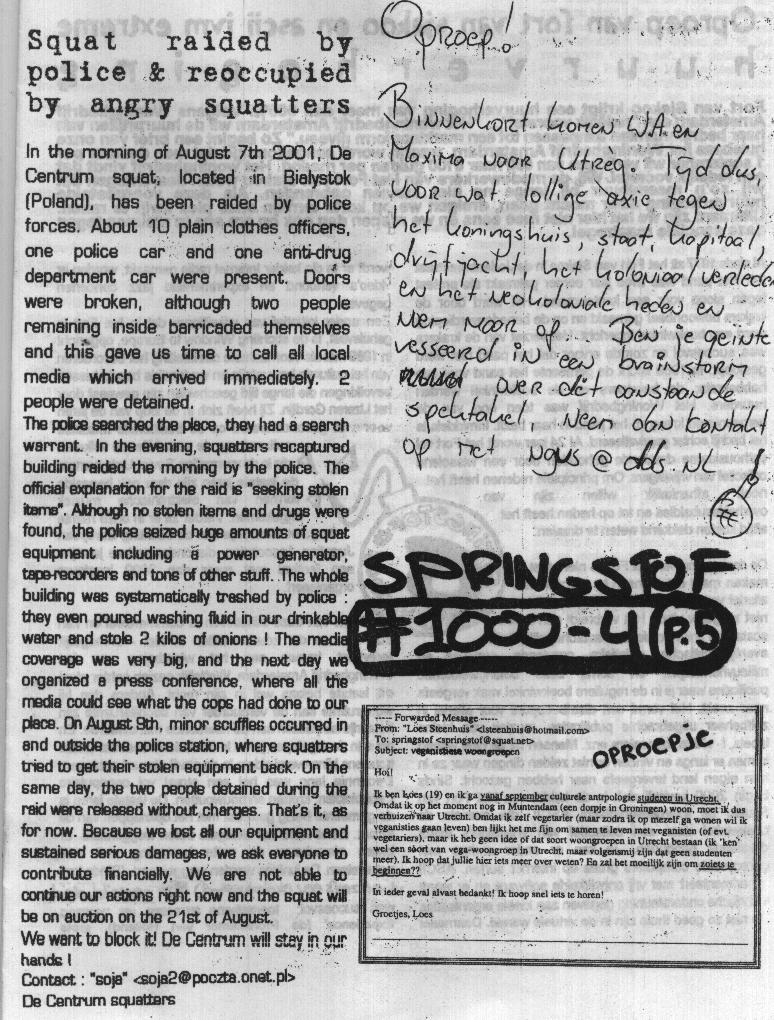 Squat raided by
police & reoccupied
by angry squatters
In the morning of August 7th 2001, De
Centrum squat, located in Bialystok
(Poland), has been raided by police
forces. About 10 plain clothes officers,
one police car and one anti-drug
department car were present. Doors
were broken, although two people
remaining inside barricaded themselves
and this gave us time to call all local
media which arrived immediately. 2
people were detained.
The police searched the place, they had a search
warrant. In the evening, squatters recaptured
building raided the morning by the police. The
official explanation for the raid is "seeking stolen
items". Although no stolen items and drugs were
found, the police seized huge amounts of squat
equipment including a power generator,
tape-recorders and tons of other stuff. The whole
building was systematically trashed by police :
they even poured washing fluid in our drinkable
water and stole 2 kilos of onions ! The media
coverage was very big, and the next day we
organized a press conference, where all the
media could see what the cops had done to our
place. On August 9th, minor scuffles occurred in
and outside the police station, where squatters
tried to get their stolen equipment back. On the
same day, the two people detained during the
raid were released without charges. That's it, as
for now. Because we lost all our equipment and
sustained serious damages, we ask everyone to
contribute financially. We are not able to
continue our actions right now and the squat will
be on auction on the 21st of August.
We want to block it! De Centrum will stay in our
hands !
Contact : "soja" <soja2@poczta.onet.pl>
De Centrum squatters
Oproep!
Binnenkort komen WA en
Maxima naar Utrèg. Tijd dus,
voor wat lollige axie tegen
het koningshuis, staat, kapitaal,
drijfjacht, het koloniaal verleden
en het neokoloniale heden en
noem maar op... Ben je geïnte
resseerd in een brainstorm
over dit aanstaande
spektakel, neem dan kontakt
op met ngus @ dds.NL
SPRINGSTOF
#1000-4 P.5
----- Forwarded Message -----
From: "Loes Steenhuis" <lsteenhuis@hotmail.com>
To: springstof <springstof@squat.net>
Subject: veganistiese woongroepen
OPROEPJE
Hoi!
Ik ben Loes (19) en ik ga vanaf september culturele antrpologie studeren in Utrecht.
Omdat ik op het moment nog in Muntendam (een dorpje in Groningen) woon, moet ik dus
verhuizen naar Utrecht. Omdat ik zelf vegetarier (maar zodra ik op mezelf ga wonen wil ik
veganisties gaan leven) ben lijkt het me fijn om samen te leven met veganisten (of evt.
vegetariers), maar ik heb geen idee of dat soort woongroepen in Utrecht bestaan (ik 'ken'
wel een soort van vega-woongroep in Utrecht, maar volgensmij zijn dat geen studenten
meer). Ik hoop dat jullie hier iets meer over weten? En zal het moeilijk zijn om zoiets te
beginnen??
In ieder geval alvast bedankt! Ik hoop snel iets te horen!
Groetjes, Loes